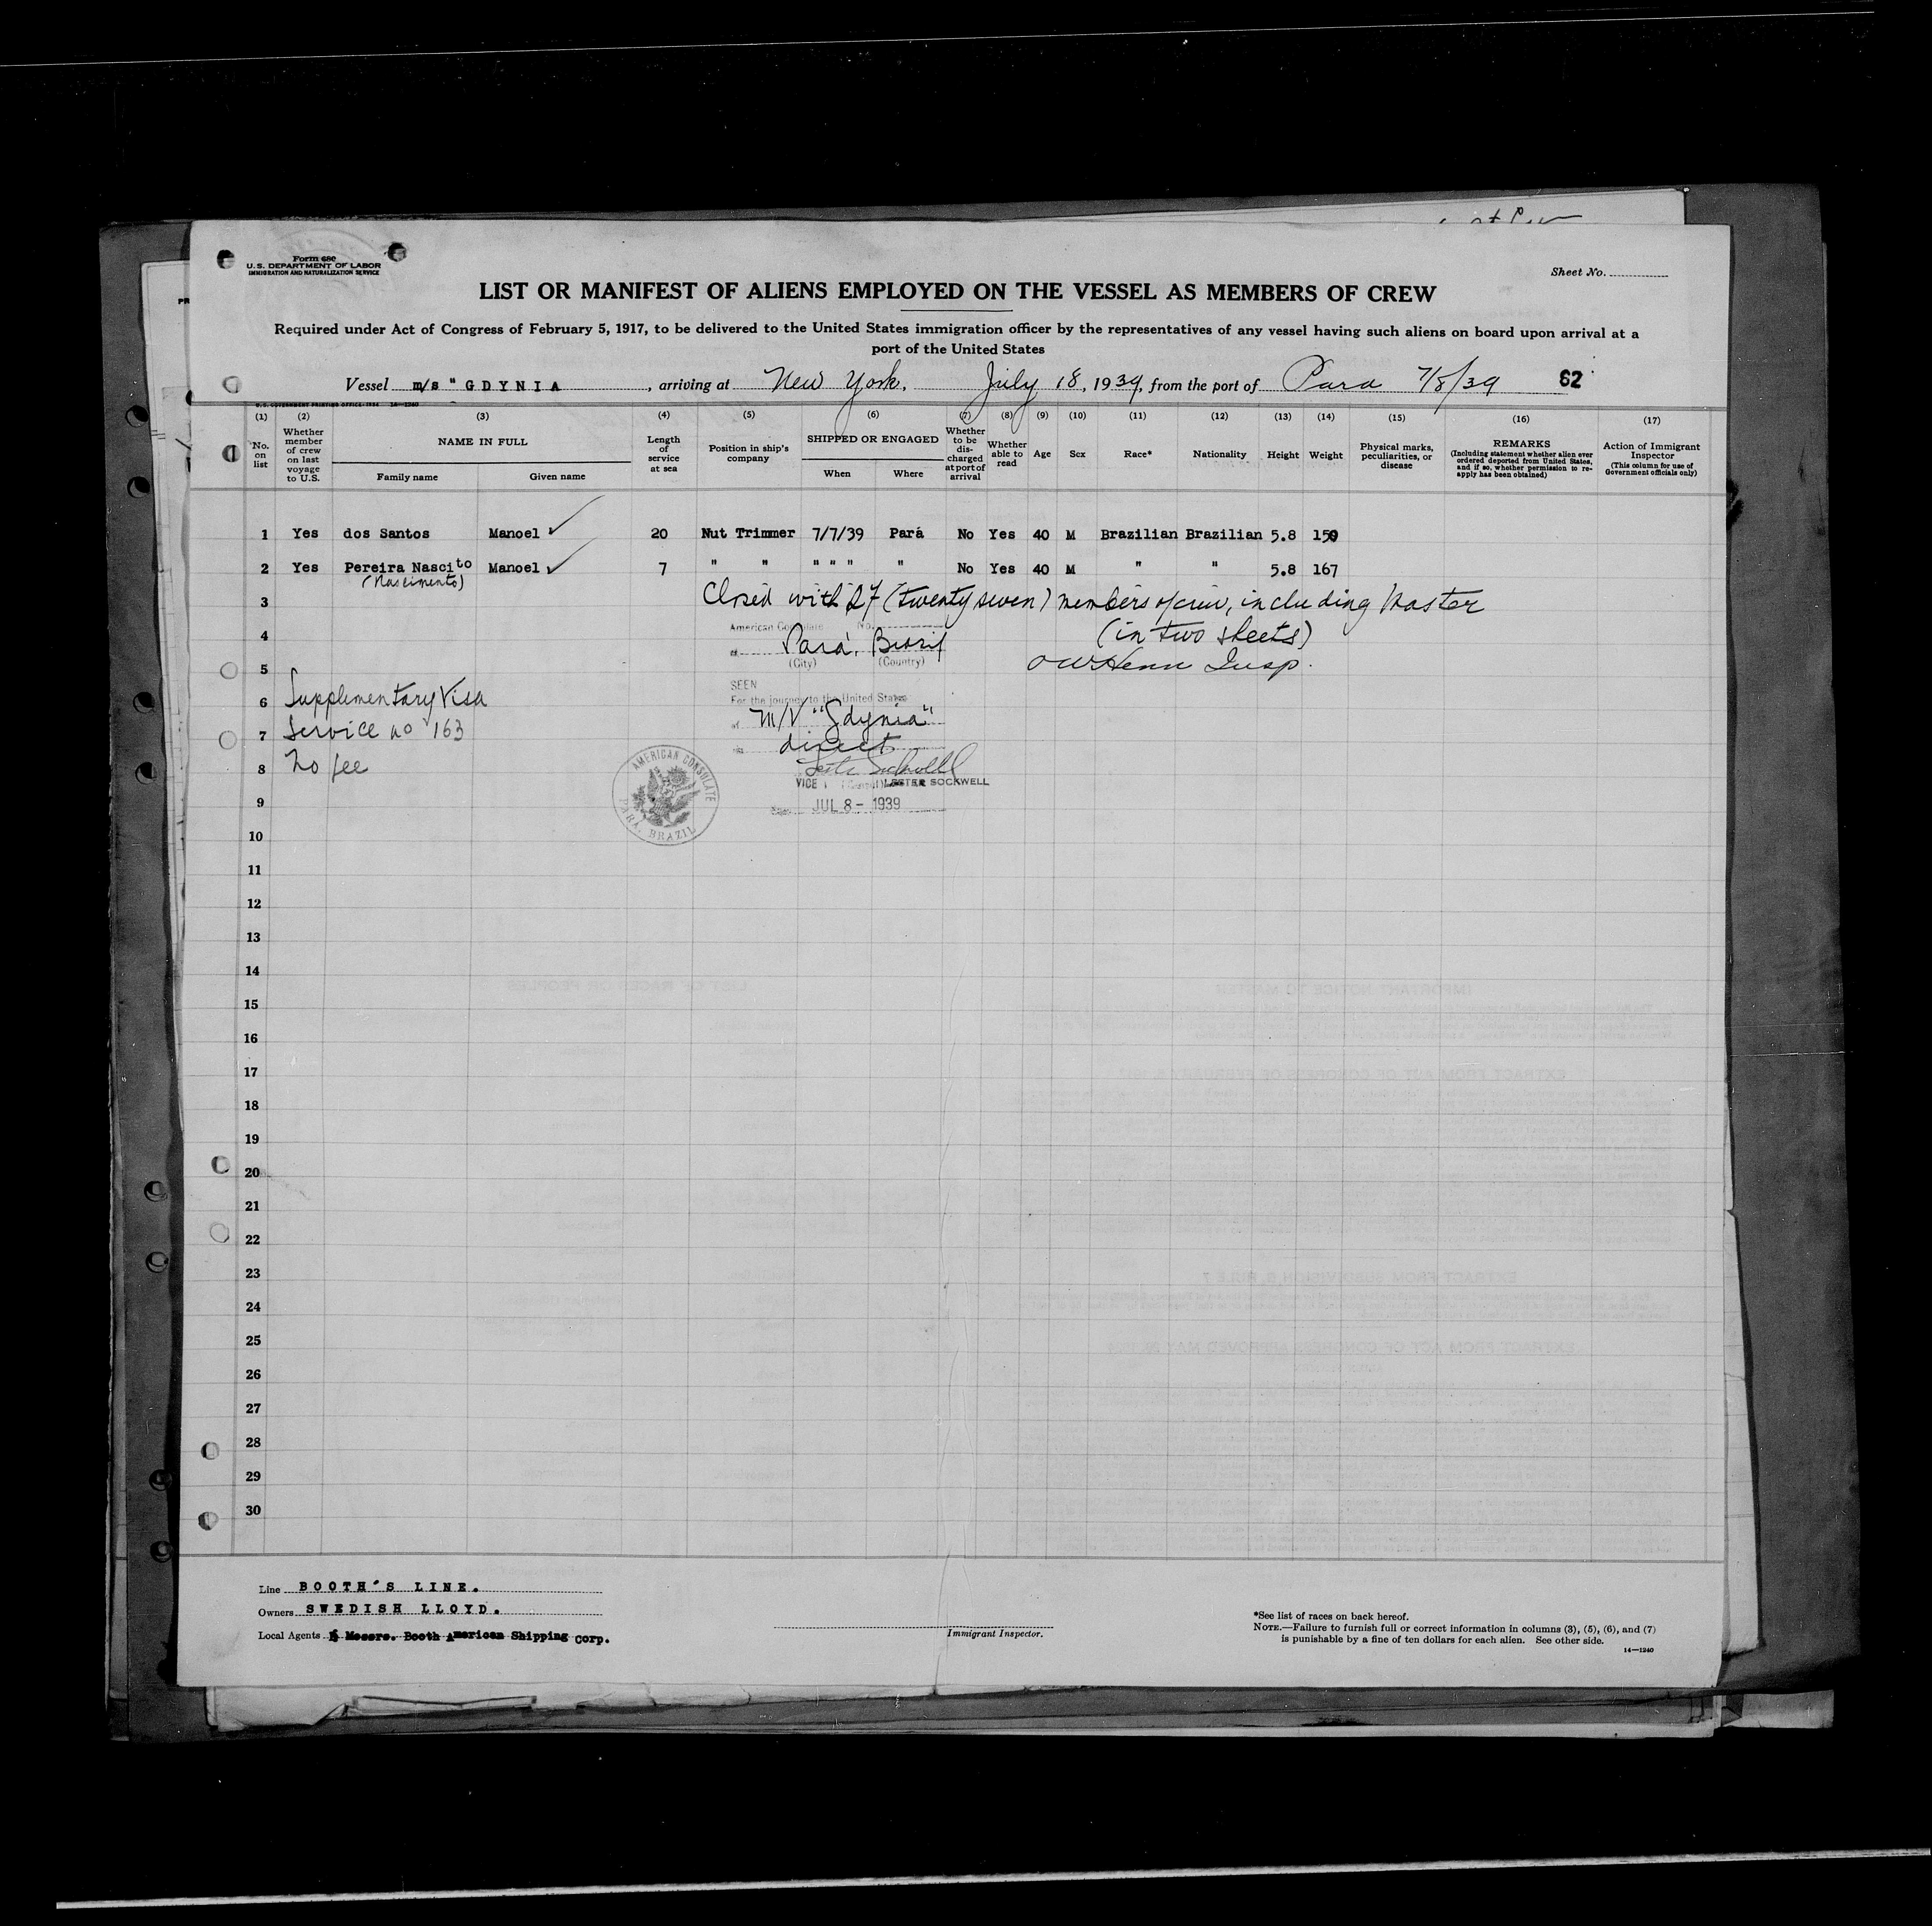 Form 680
U. S. DEPARTMENT OF LABOR
IMMIGRATION AND NATURALIZATION SERVICE
Sheet No.
LIST OR MANIFEST OF ALIENS EMPLOYED ON THE VESSEL AS MEMBERS OF CREW
Required under Act of Congress of February 5, 1917, to be delivered to the United States immigration officer by the representatives of any vessel having such aliens on board upon arrival at a
port of the United States
Vessel m/s "GDYNIA , arriving at New York, July 18, 1939, from the port of Para 7/8/39 62
U.S. GOVERNMENT PRINTING OFFICE: 1934 14—1240
(1) (2) (3) (4) (5) (6) (7) (8) (9) (10) (11) (12) (13) (14) (15) (16) (17)
No. on list Whether member of crew on last voyage to U.S. NAME IN FULL Family name Given name Length of service at sea Position in ship's company SHIPPED OR ENGAGED When Where Whether to be discharged at port of arrival Whether able to read Age Sex Race* Nationality Height Weight Physical marks, peculiarities, or disease REMARKS (Including statement whether alien ever ordered deported from United States, and if so, whether permission to re-apply has been obtained) Action of Immigrant Inspector (This column for use of Government officials only)
1 Yes dos Santos Manoel 20 Nut Trimmer 7/7/39 Pará No Yes 40 M Brazilian Brazilian 5.8 150
2 Yes Pereira Nascito Manoel 7 " " " " " " No Yes 40 M " " 5.8 167
(Nascimento)
3 Closed with 27 (twenty seven) members of crew, including Master
4 (in two sheets)
American Consulate No.
at Pará, Brazil
(City) (Country)
5 Insp.
SEEN
For the journey to the United States
6 Supplementary Visa
of M/V "Gdynia"
7 Service no 163
via direct
8 No fee
VICE LESTER SOCKWELL
9 JUL 8 - 1939
AMERICAN CONSULATE
PARA, BRAZIL
10
11
12
13
14
15
16
17
18
19
20
21
22
23
24
25
26
27
28
29
30
Line BOOTH'S LINE.
Owners SWEDISH LLOYD.
Local Agents Messrs. Booth American Shipping Corp.
Immigrant Inspector.
*See list of races on back hereof.
NOTE.—Failure to furnish full or correct information in columns (3), (5), (6), and (7)
is punishable by a fine of ten dollars for each alien. See other side.
14—1240